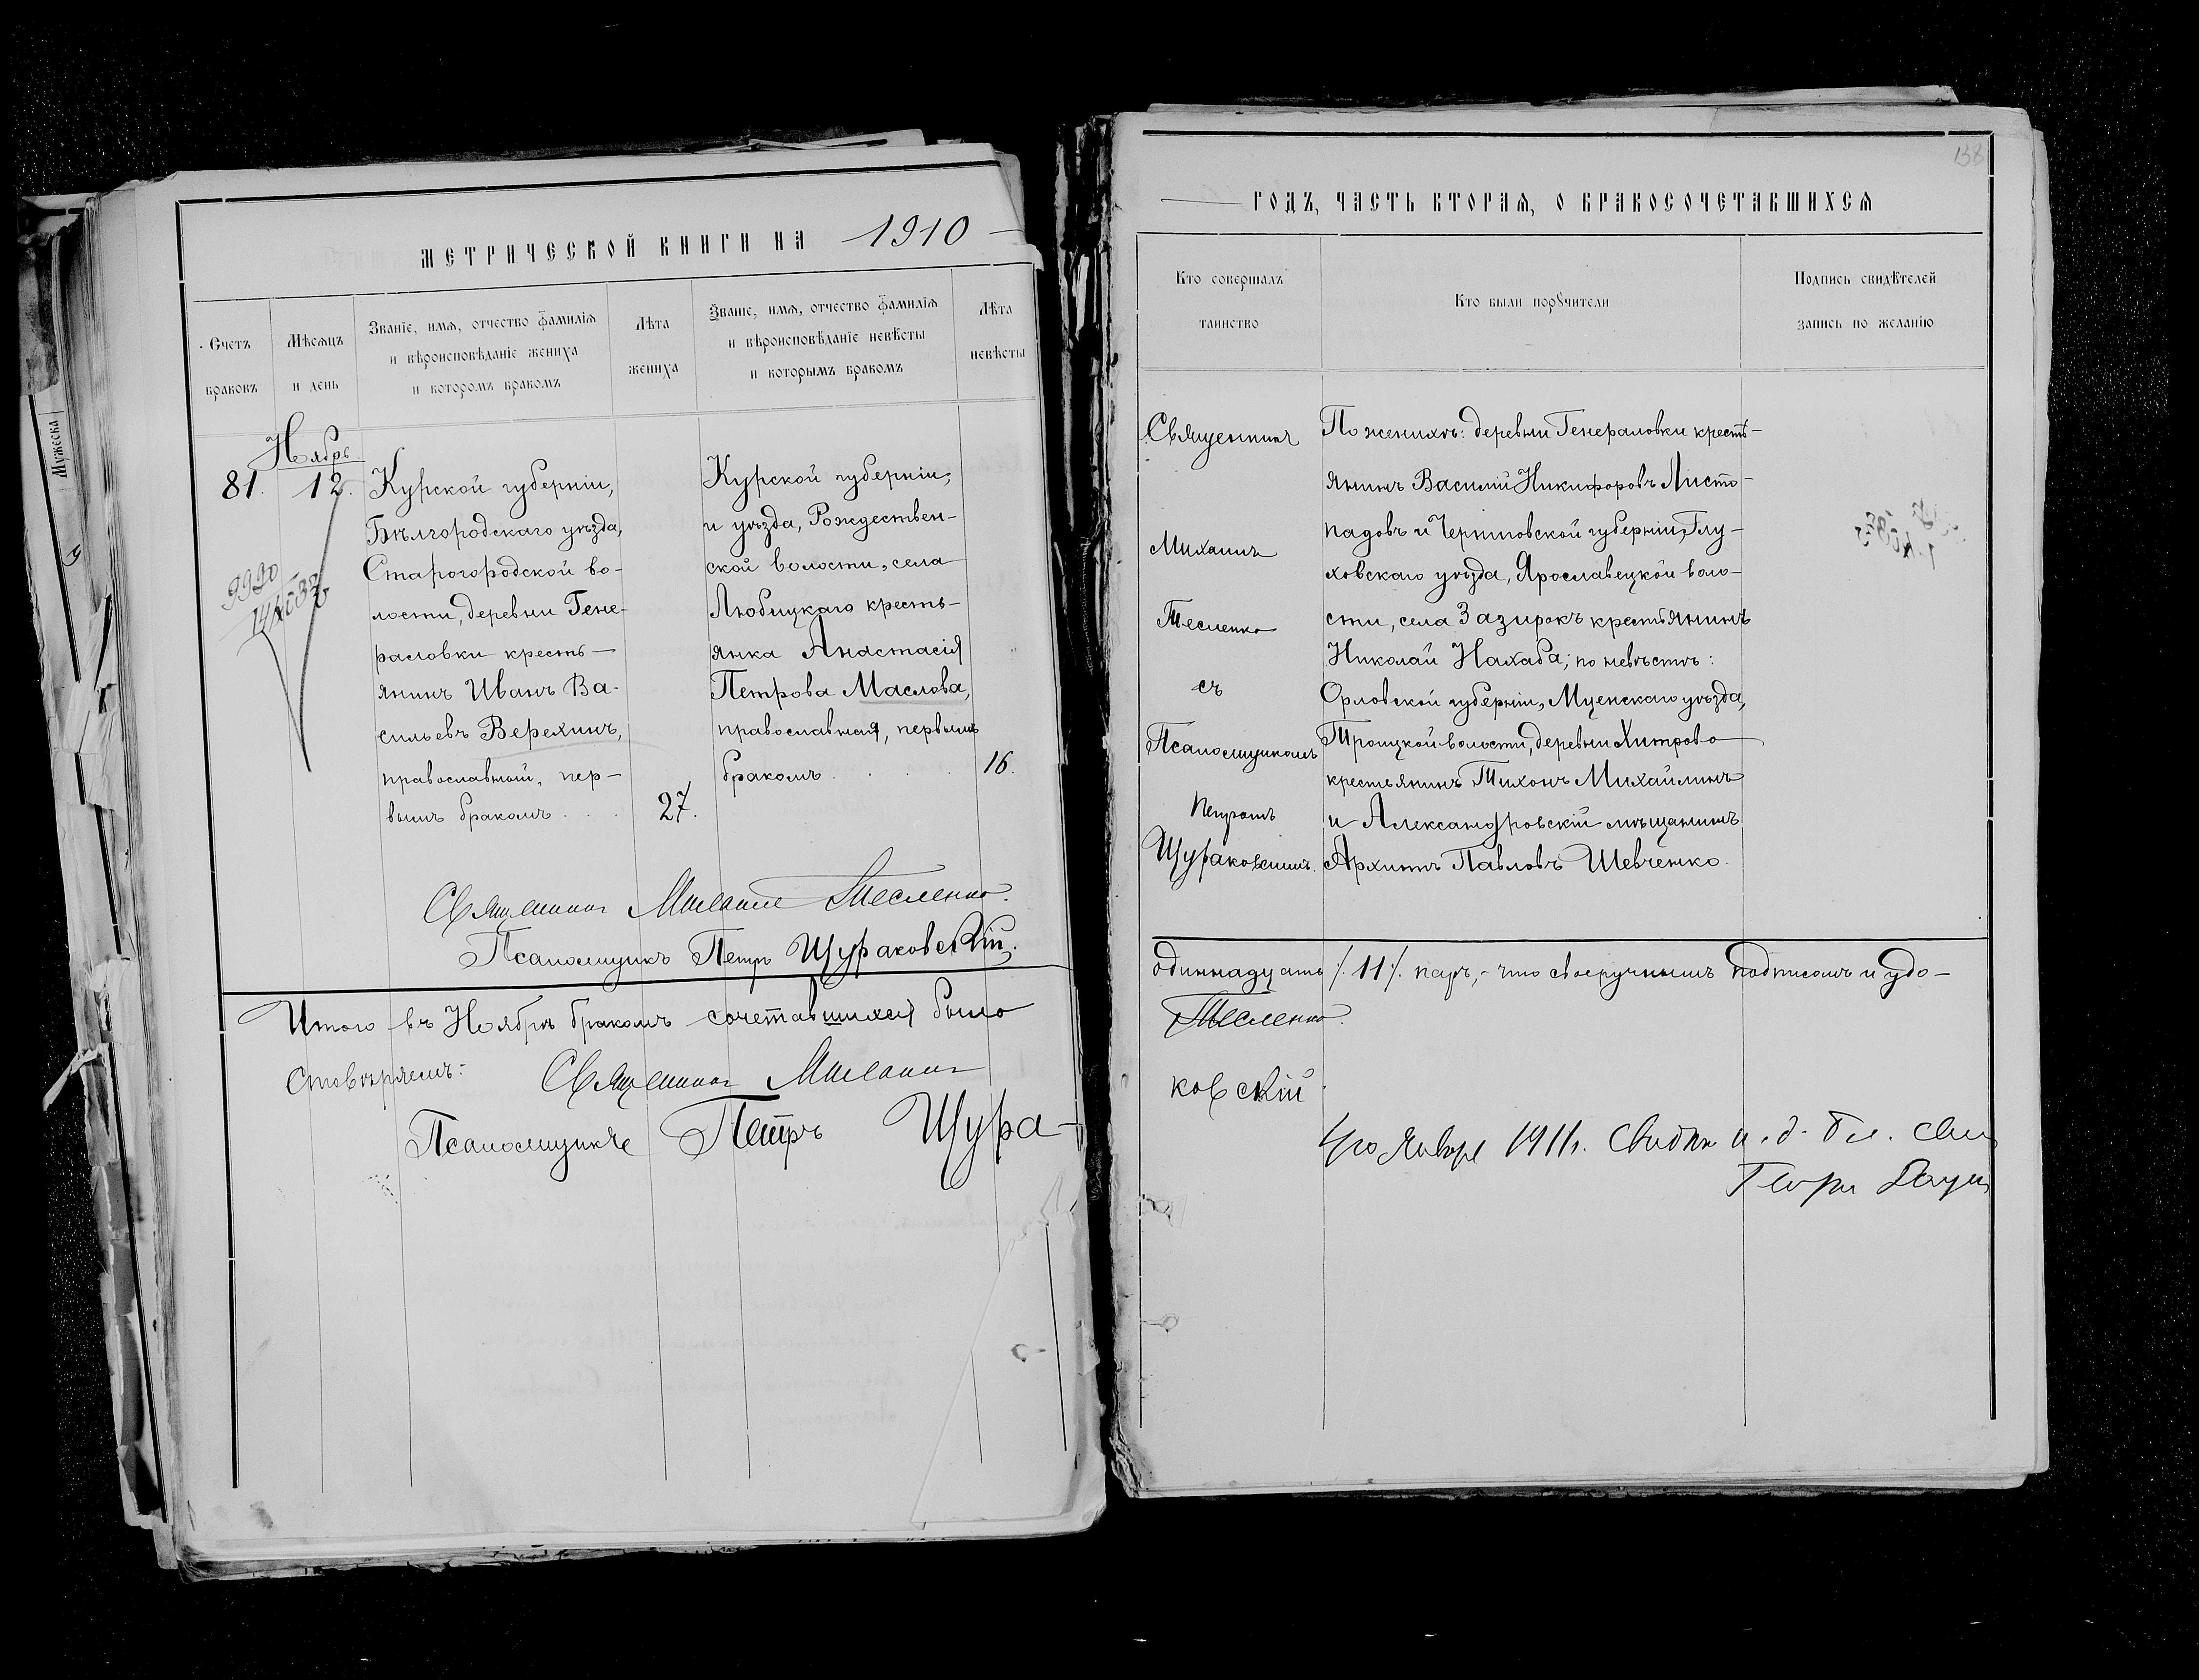 МЕТРИЧЕСКОЙ КНИГИ НА 1910
Счетъ браковъ
Мѣсяцъ и день
Званіе, имя, отчество фамилія
и вѣроисповѣданіе жениха
и которомъ бракомъ
Лѣта жениха
Званіе, имя, отчество фамилія
и вѣроисповѣданіе невѣсты
и которымъ бракомъ
Лѣта невѣсты
Мужеска
Ноябрь
81. 12.
Курской губерніи,
Бѣлгородскаго уѣзда,
Старогородской во-
лости, деревни Гене-
раловки кресть-
янинъ Иванъ Ва-
сильевъ Верехинъ,
православный, пер-
вымъ бракомъ . . .
27.
Курской губерніи,
и уѣзда, Рождествен-
ской волости, села
Любицкаго кресть-
янка Анастасія
Петрова Маслова,
православная, первымъ
бракомъ . . . .
16.
9990
Священникъ Михаилъ Тесленко.
Псаломщикъ Петръ Щураковскій.
Итого въ Ноябрѣ бракомъ сочетавшихся было
стовѣряемъ: Священникъ Михаилъ
Псаломщикъ Петръ Щура-
138
ГОДЪ, ЧАСТЬ ВТОРАЯ, О БРАКОСОЧЕТАВШИХСЯ
Кто совершалъ
таинство
Кто были порꙋчители
Подпись свидѣтелей
запись по желанію
Священникъ
Михаилъ
Тесленко
съ
Псаломщикомъ
Петромъ
Щураковскимъ.
По женихѣ: деревни Генераловки кресть-
янинъ Василій Никифоровъ Листо-
падовъ и Черниговской губерніи, Глу-
ховскаго уѣзда, Ярославецкой воло-
сти, села Зазирокъ крестьянинъ
Николай Нахаба; по невѣстѣ:
Орловской губерніи, Мценскаго уѣзда,
Троицкой волости, деревни Хитрово
крестьянинъ Тихонъ Михайлинъ
и Александровскій мѣщанинъ
Архипъ Павловъ Шевченко.
одиннадцать /. 11 /. паръ,- что своеручнымъ подписомъ и удо-
Тесленко.
ковскій
4го Января 1911г.